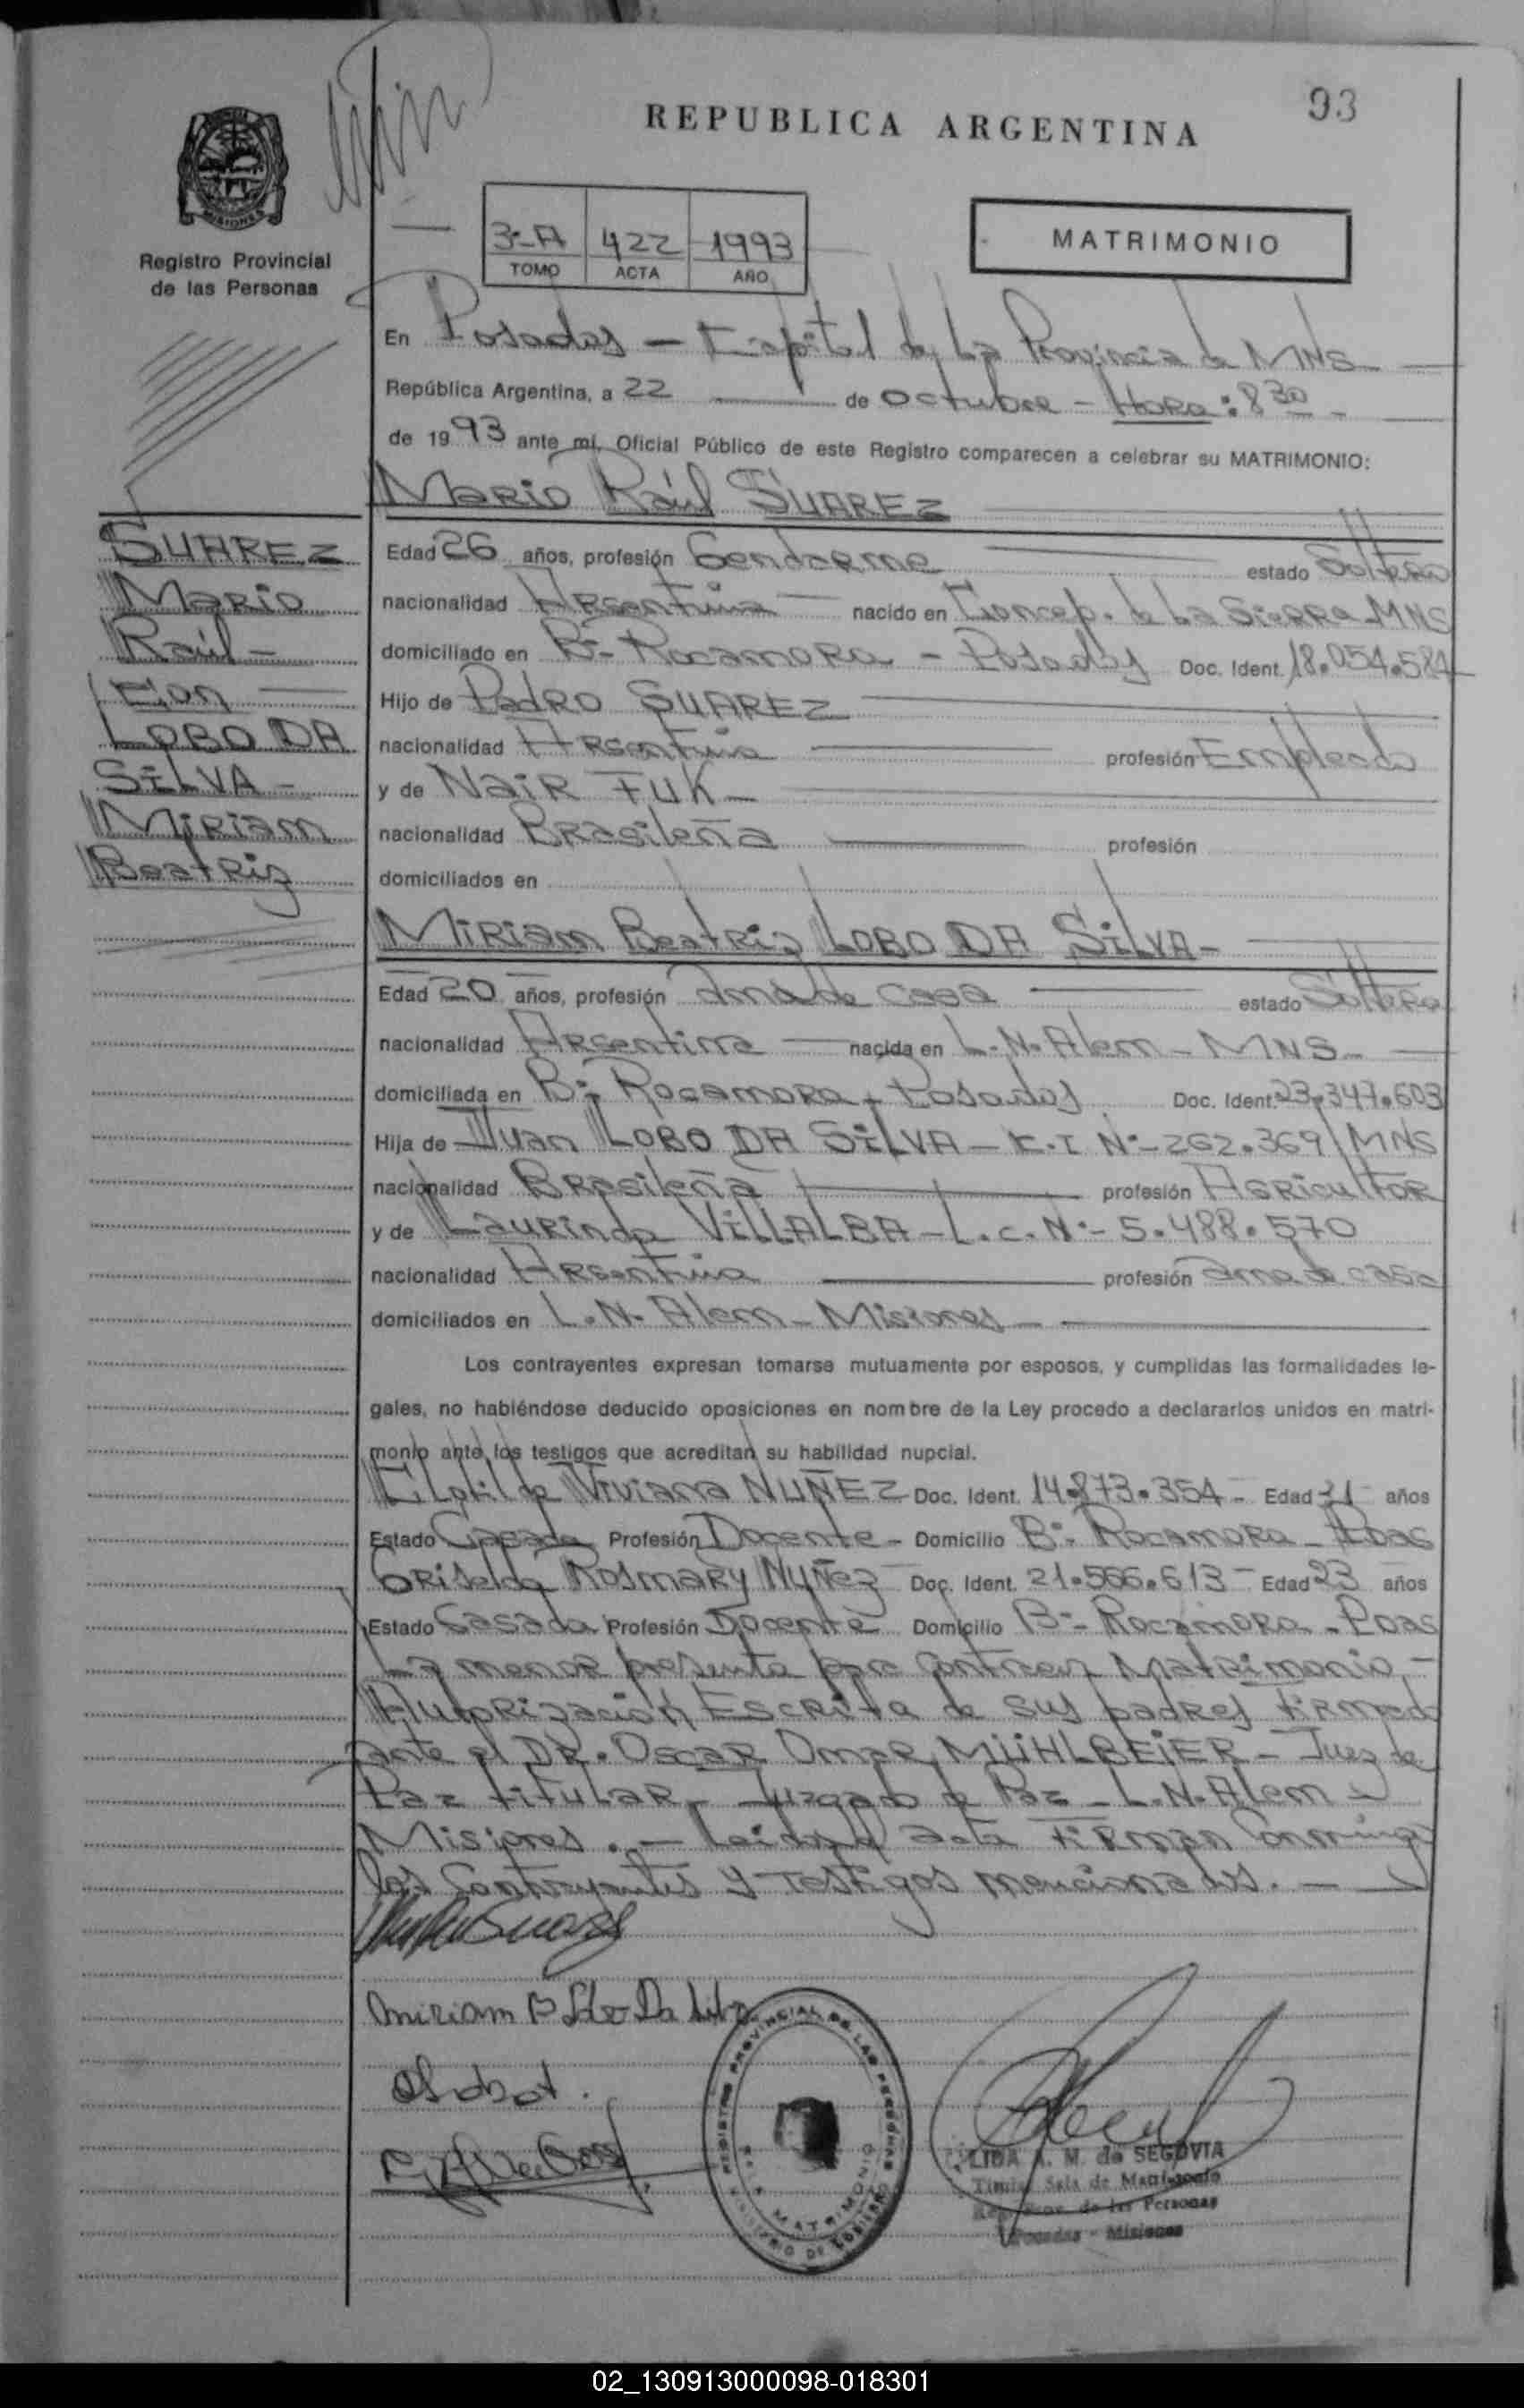 93
REPUBLICA ARGENTINA
MISIONES
Registro Provincial
de las Personas
3º-A 422 1993
TOMO ACTA AÑO
MATRIMONIO
En Posadas - Capital de La Provincia de MNS
República Argentina, a 22 de Octubre - Hora: 8 30 -
de 1993 ante mí, Oficial Público de este Registro comparecen a celebrar su MATRIMONIO:
Mario Raúl SUAREZ
SUAREZ
Mario
Raúl -
Con
LOBO DA
SILVA -
Miriam
Beatriz
Edad 26 años, profesión Gendarme estado Soltero
nacionalidad Argentina nacido en Concep. de La Sierra-MNS
domiciliado en Bº- Rocamora - Posadas Doc. Ident. 18.054.584
Hijo de Pedro SUAREZ
nacionalidad Argentina profesión Empleado
y de Nair FUK -
nacionalidad Brasileña profesión
domiciliados en
Miriam Beatriz LOBO DA SILVA -
Edad 20 años, profesión ama de casa estado Soltera
nacionalidad Argentina nacida en L.N. Alem - MNS
domiciliada en Bº- Rocamora - Posadas Doc. Ident. 23.347.603
Hija de Juan LOBO DA SILVA - C.I Nº-262.369/MNS
nacionalidad Brasileña profesión Agricultor
y de Laurinda VILLALBA - L.C. Nº- 5.488.570
nacionalidad Argentina profesión ama de casa
domiciliados en L.N. Alem - Misiones -
Los contrayentes expresan tomarse mutuamente por esposos, y cumplidas las formalidades le-
gales, no habiéndose deducido oposiciones en nombre de la Ley procedo a declararlos unidos en matri-
monio ante los testigos que acreditan su habilidad nupcial.
Clotilde Viviana NUÑEZ Doc. Ident. 14.873.354 - Edad 31 años
Estado Casada Profesión Docente - Domicilio Bº- Rocamora - Pdas
Griselda Rosmary Nuñez Doc. Ident. 21.566.613 - Edad 23 años
Estado Casada Profesión Docente Domicilio Bº- Rocamora - Pdas
La menor presenta para contraer Matrimonio -
Autorización Escrita de sus padres firmado
ante el DR. Oscar Omar MÜHLBEIER - Juez de
Paz titular - Juzgado de Paz - L.N. Alem -
Misiones. - Leida el acta firman conmigo
los Contrayentes y testigos mencionados. -
Miriam B Lobo Da Silva
REGISTRO PROVINCIAL DE LAS PERSONAS
SALA MATRIMONIO
MINISTERIO DE GOBIERNO
LIDA A. M. de SEGOVIA
Titular Sala de Matrimonio
Reg. Prov. de las Personas
Posadas - Misiones
02_130913000098-018301